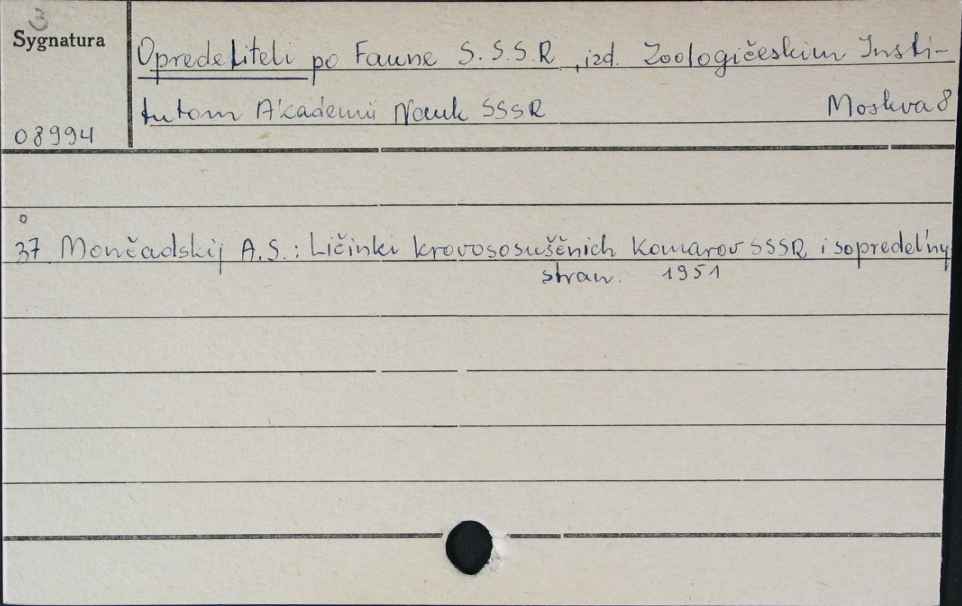 3
Sygnatura
Opredeliteli po Faune S.S.S.R., izd. Zoologičeskim Insti-
tutom Akademii Nauk SSSR Moskva 8
08994
37 Mončadskij A.S.: Ličinki krovososuščnich Komarov SSSR i sopredel'ny
stran. 1951